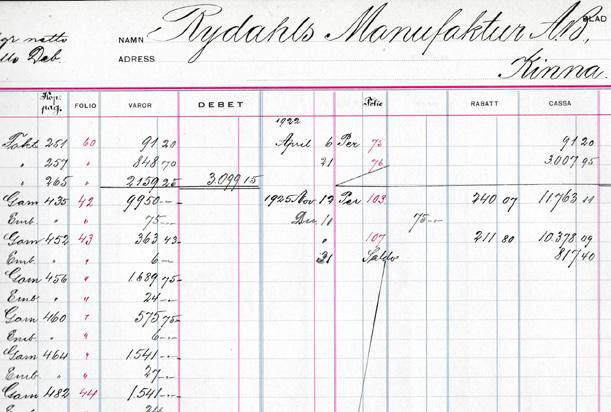 BLAD
NAMN Rydahls Manufaktur A.B.
netto
Deb.
ADRESS Kinna.
Kop. pag. FOLIO VAROR DEBET Folio RABATT CASSA
1922
Fakt 251 60 91 20 April 6 Per 75 91 20
" 257 " 848 70 21 76 3007 95
" 265 " 2159 25 3.099 15
Garn 435 42 9950 -- 1925 Nov. 12 Per 103 240 07 11763 11
Emb. " " 75 -- Dec. 11 75 --
Garn 452 43 363 43 " 107 211 80 10.378 09
Emb. " " 6 -- 31 Saldo 817 40
Garn 456 " 1689 75
Emb. " " 24 --
Garn 460 " 575 75
Emb. " " 6 --
Garn 464 " 1541 --
Emb. " " 27 --
Garn 482 44 1541 --
Emb. " "